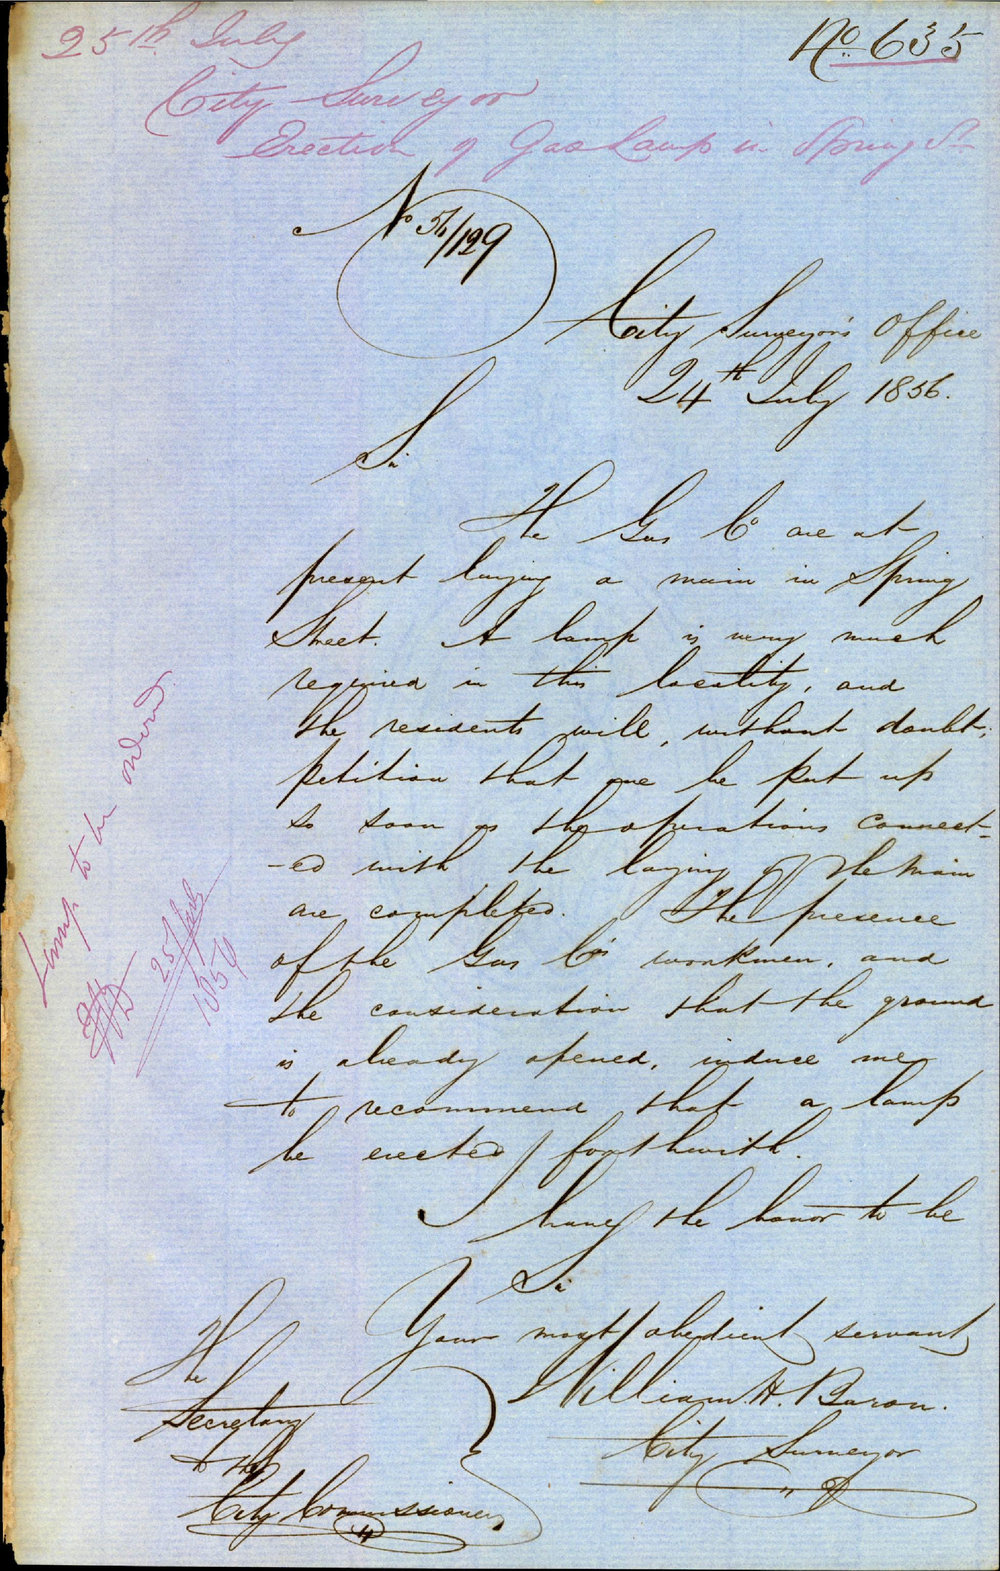 25th July
No 635
City Surveyor
Erection of Gas Lamp in Spring St
No 56/129
City Surveyor's Office
24th July 1856.
Sir
The Gas Co are at
present laying a main in Spring
Street. A lamp is very much
required in this locality, and
the residents will, without doubt,
petition that one be put up
so soon as the operations connect=
-ed with the laying of the main
are completed. The presence
of the Gas Co's workmen, and
the consideration that the ground
is already opened, induce me
to recommend that a lamp
be erected forthwith.
I have the honor to be
Sir
Your most obedient servant
William H. Baron.
City Surveyor
The
Secretary
to the
City Commissioners
Lamp to be ordered.
25 July